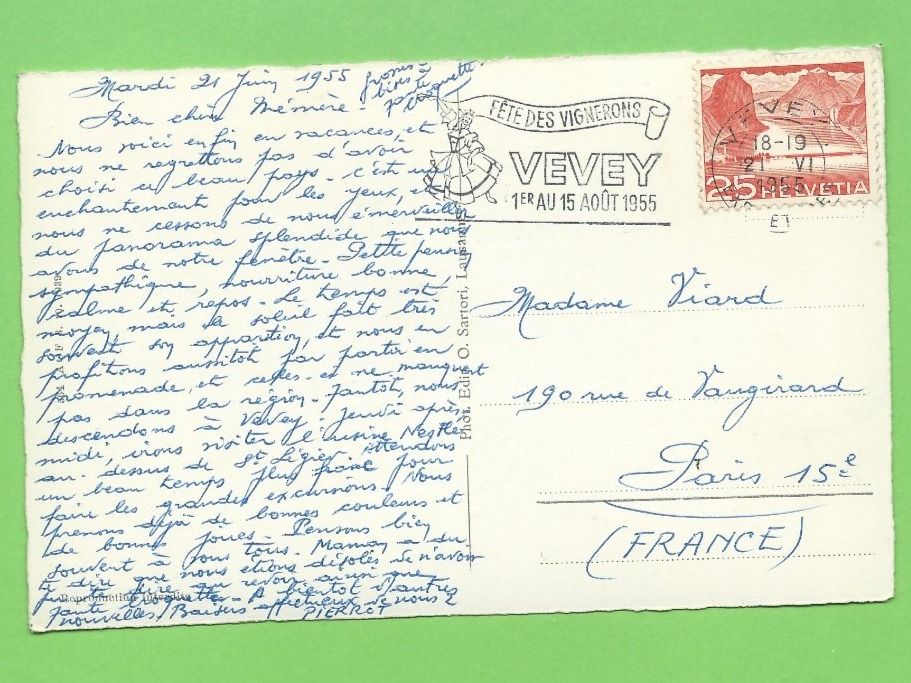 Mardi 21 Juin 1955
grosses
bises à
p'tite
Bien chère Mémère
Nous voici enfin en vacances, et
nous ne regrettons pas d'avoir
choisi ce beau pays. C'est un
enchantement pour les yeux, et
nous ne cessons de nous émerveiller
du panorama splendide que nous
avons de notre fenêtre. Petite pension
sympathique, nourriture bonne,
calme et repos. Le temps est
moyen, mais le soleil fait très
souvent son apparition, et nous en
profitons aussitôt par partir en
promenade, et celles-ci ne manquent
pas dans la région. Tantôt, nous
descendons à Vevey. Jeudi après
midi, irons visiter l'usine Nestlé,
au-dessus de St Légier. Attendons
un beau temps plus franc pour
faire les grandes excursions. Nous
prenons déjà de bonnes couleurs et
de bonnes joues. Pensons bien
souvent à vous tous. Maman a du
te dire que nous étions désolés de n'avoir
pu te dire au revoir, ainsi que
tante. A bientôt d'autres
nouvelles. Baisers affectueux de nous 2
PIERROT
Reproduction interdite
Phot. Edit. O. Sartori, Lausanne
FÊTE DES VIGNERONS
VEVEY
1ER AU 15 AOÛT 1955
VEVEY
18-19
21 VI
1955
25 HELVETIA
Madame Viard
190 rue de Vaugirard
Paris 15e
(FRANCE)